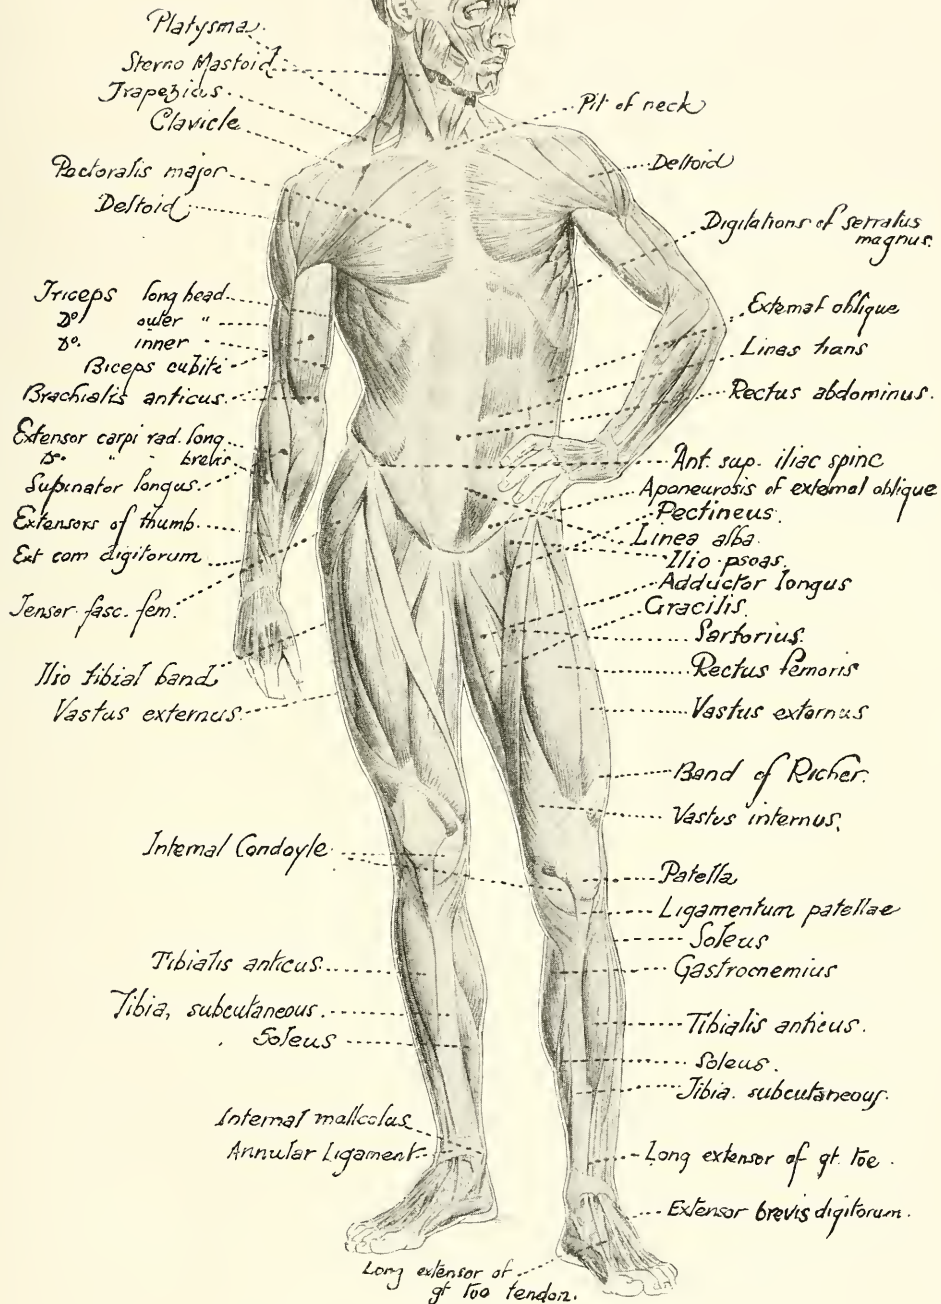 Platysma.
Sterno Mastoid
Trapezius
Clavicle
Pectoralis major
Deltoid
Triceps long head
Do. outer "
Do. inner "
Biceps cubiti
Brachialis anticus
Extensor carpi rad. long
Do. " " brevis
Supinator longus.
Extensors of thumb
Ext com digitorum
Tensor fasc. fem.
Ilio tibial band
Vastus externus
Internal Condoyle
Tibialis anticus
Tibia, subcutaneous
Soleus
Internal malleolus
Annular Ligament
Long extensor of
gt too tendon.
Pit of neck
Deltoid
Digitations of serratus
magnus.
External oblique
Linea trans
Rectus abdominus.
Ant. sup. iliac spine
Aponeurosis of external oblique
Pectineus
Linea alba
Ilio psoas.
Adductor longus
Gracilis.
Sartorius.
Rectus femoris
Vastus externus
Band of Richer.
Vastus internus.
Patella
Ligamentum patellae
Soleus
Gastrocnemius
Tibialis anticus.
Soleus.
Tibia. subcutaneous.
Long extensor of gt. toe.
Extensor brevis digitorum.